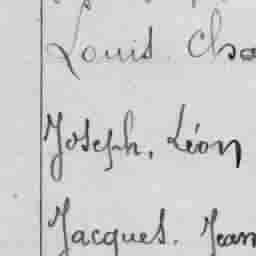 Louis. Cha
Joseph, Léon
Jacques. Jean